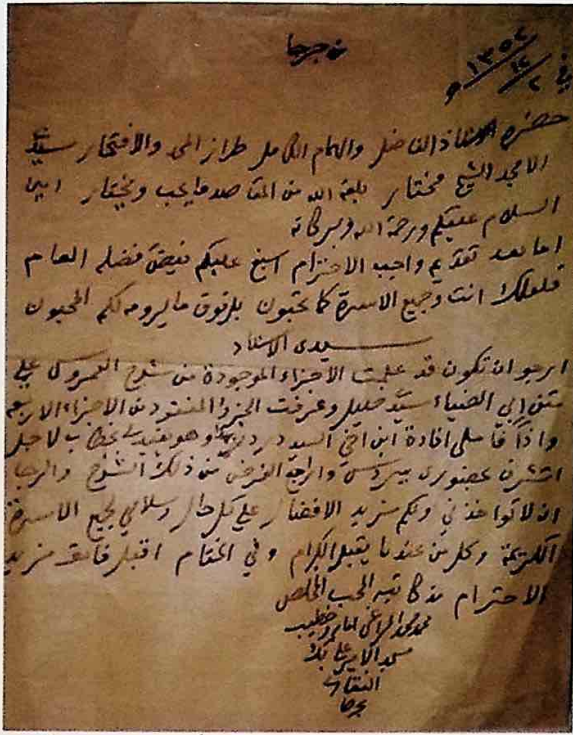 من جرجا
في ٢ / ١٢ / ١٣٥٢ هـ
حضرة الاستاذ الفاضل والهمام الكامل طراز المجد والافتخار سيدي
الامجد الشيخ مختار بلغه الله من المقاصد ما يحب ويختار امين
السلام عليكم ورحمة الله وبركاته
اما بعد تقديم واجب الاحترام اسبغ عليكم فيض فضله العام
فلعلك انت وجميع الاسرة كما تحبون بل فوق ما يرومه لكم المحبون
سيدى الاستاذ
ارجو ان تكون قد علمت الاجزاء الموجودة من شرح العمروسي على
متن ابي الضياء سيدى خليل وعرفت الجزء المفقود من الاجزاء الاربعة
واذا فأملى افادة ابن اخي السيد دردير وهو يفيد لخطاب لاجل
اتشرف بحضورى وراجع الغرض من ذلك الشرح والرجا
ان لا تؤاخذني ولكم مزيد الافضال على كل حال وسلامي لجميع الاسرة
الكريمة وكل من عندنا يقبل الكرام وفي الختام اقبل فائق مزيد
الاحترام من كاتبه المحب المخلص
محمد محمد المراغي امام وخطيب
مسجد الامير علي بك
الفقارى
بجرجا